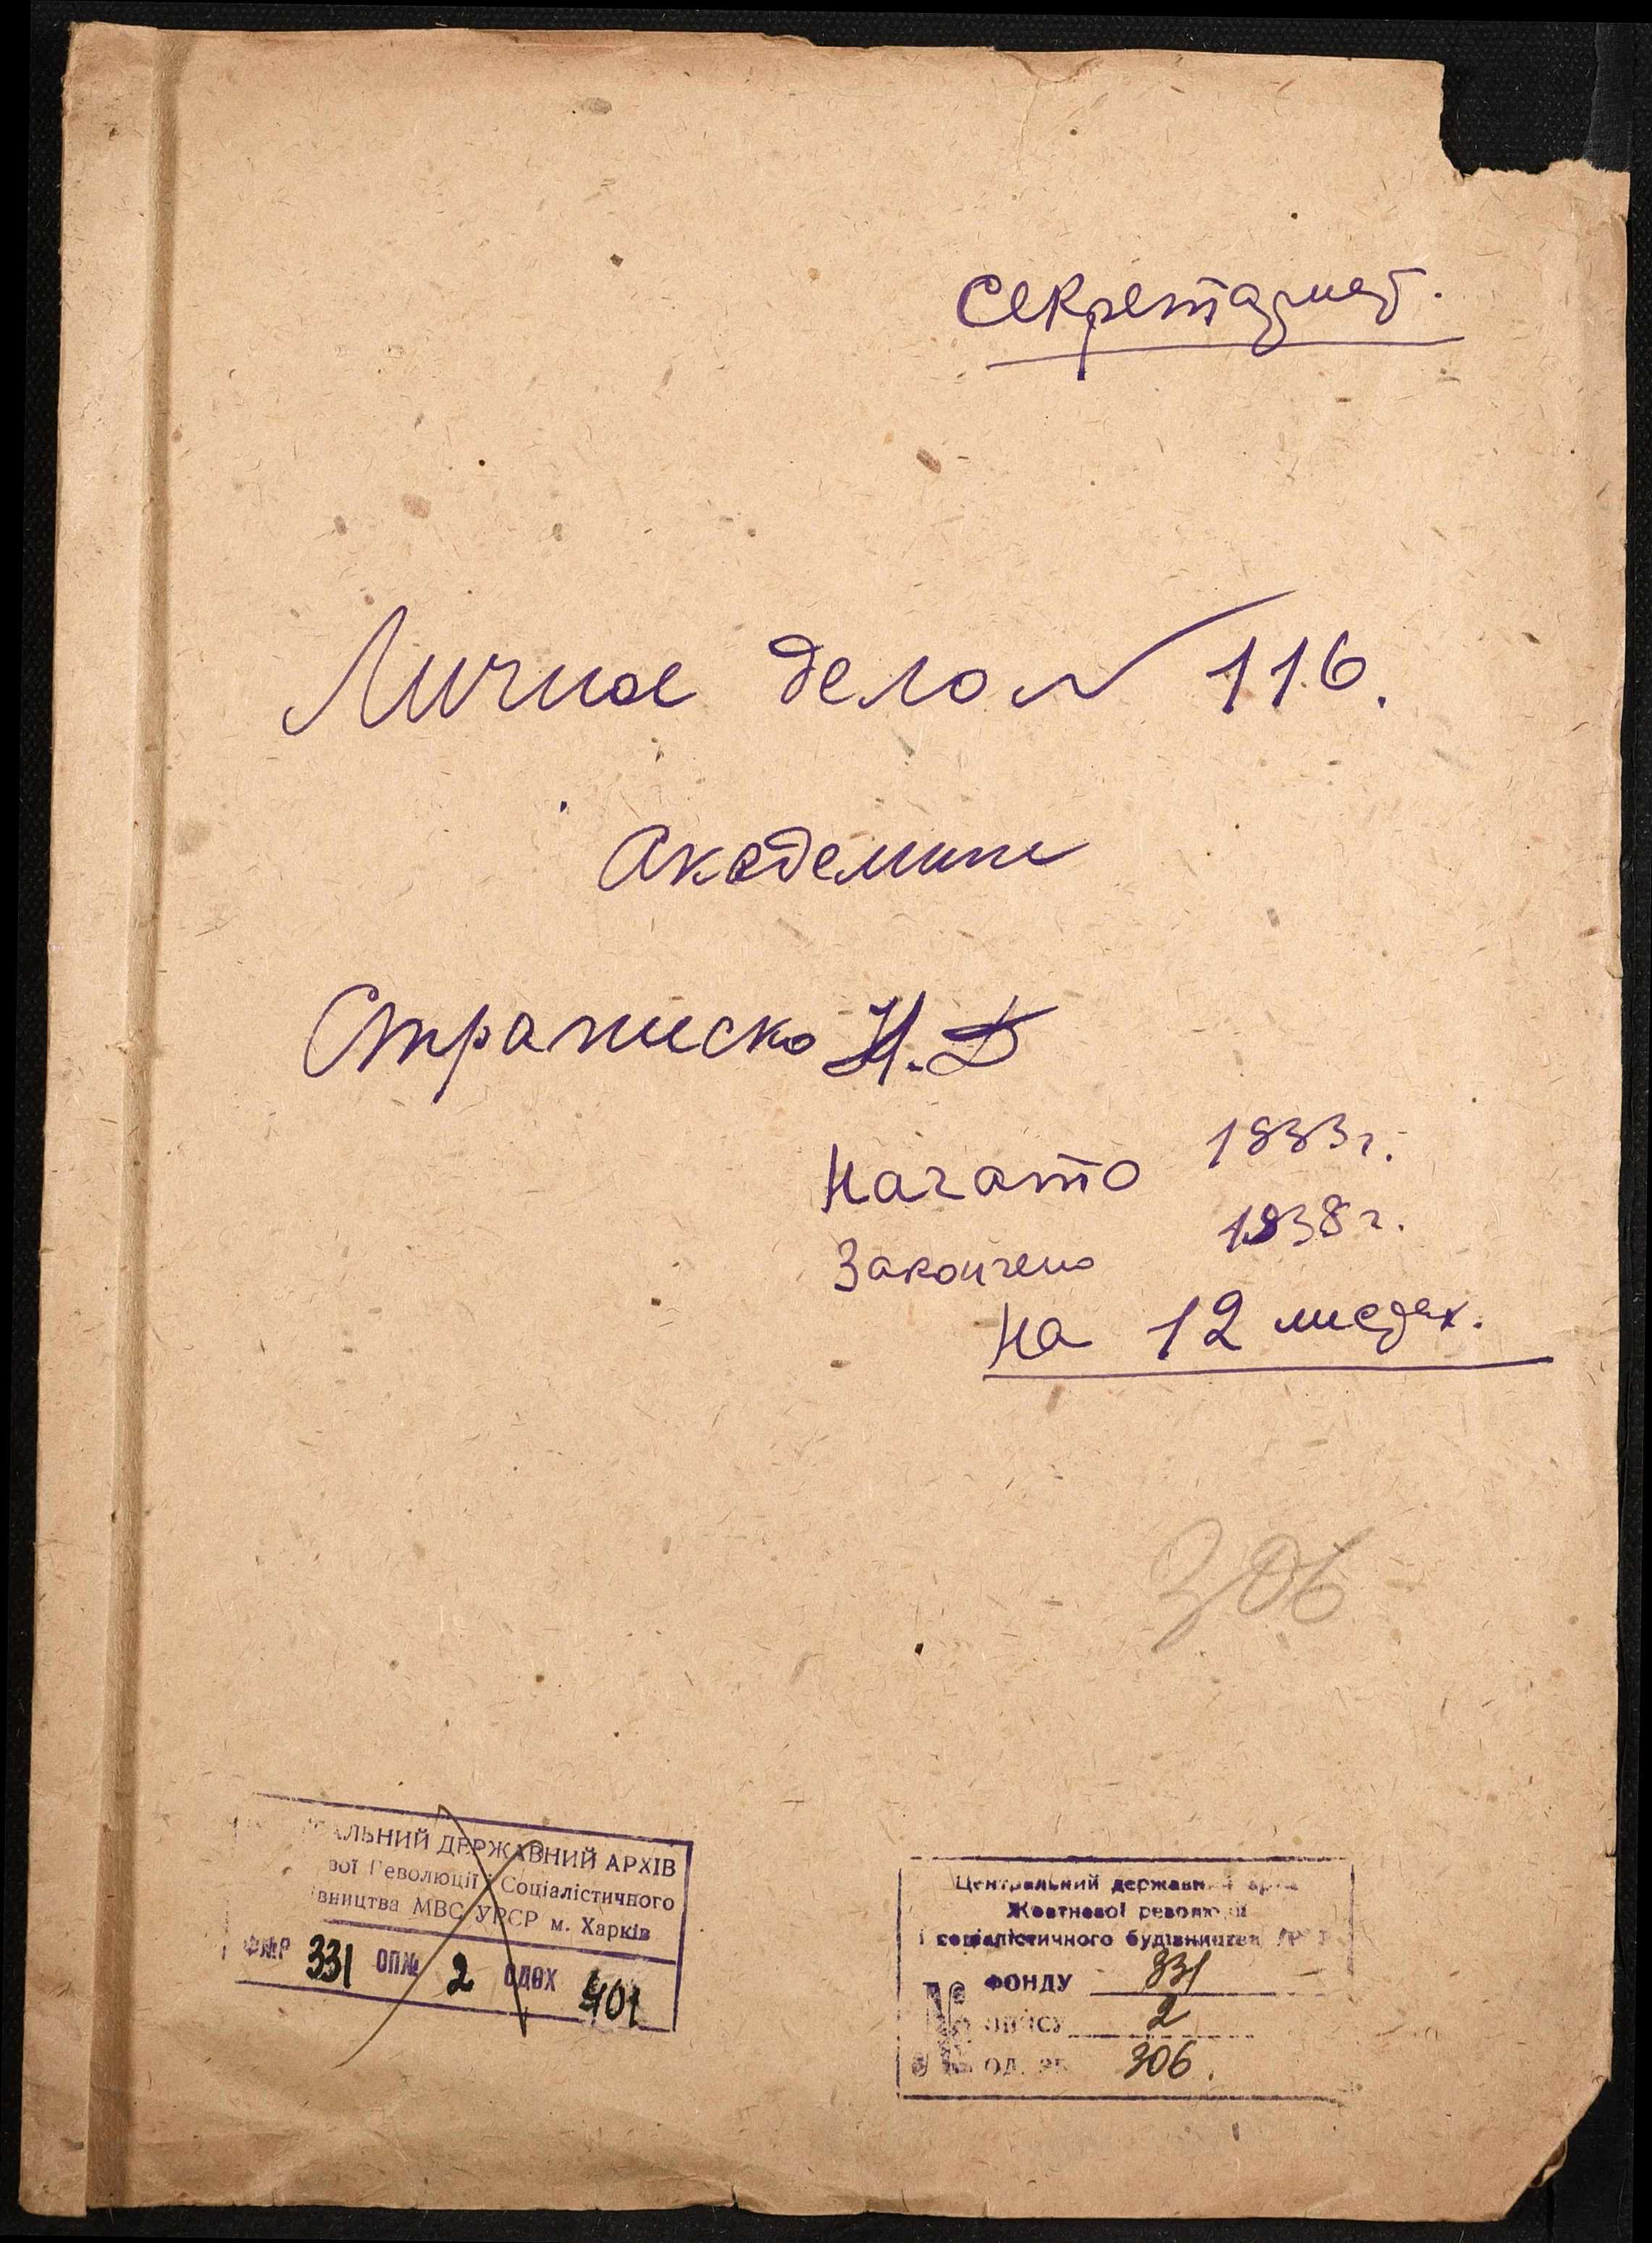 Секретариат.
Личное дело № 116.
Академика
Стражеско Н.Д
Начато 1933 г.
Закончено 1938 г.
на 12 листах.
306
АЛЬНИЙ ДЕРЖАВНИЙ АРХІВ
вої Революції і Соціалістичного
івництва МВС УРСР м. Харків
Ф№Р 331 ОП№ 2 ОДЗХ 401
Центральний державний архів
Жовтневої революції
і соціалістичного будівництва УРСР
№ ФОНДУ 331
ОПИСУ 2
ОД. ЗБ. 306.